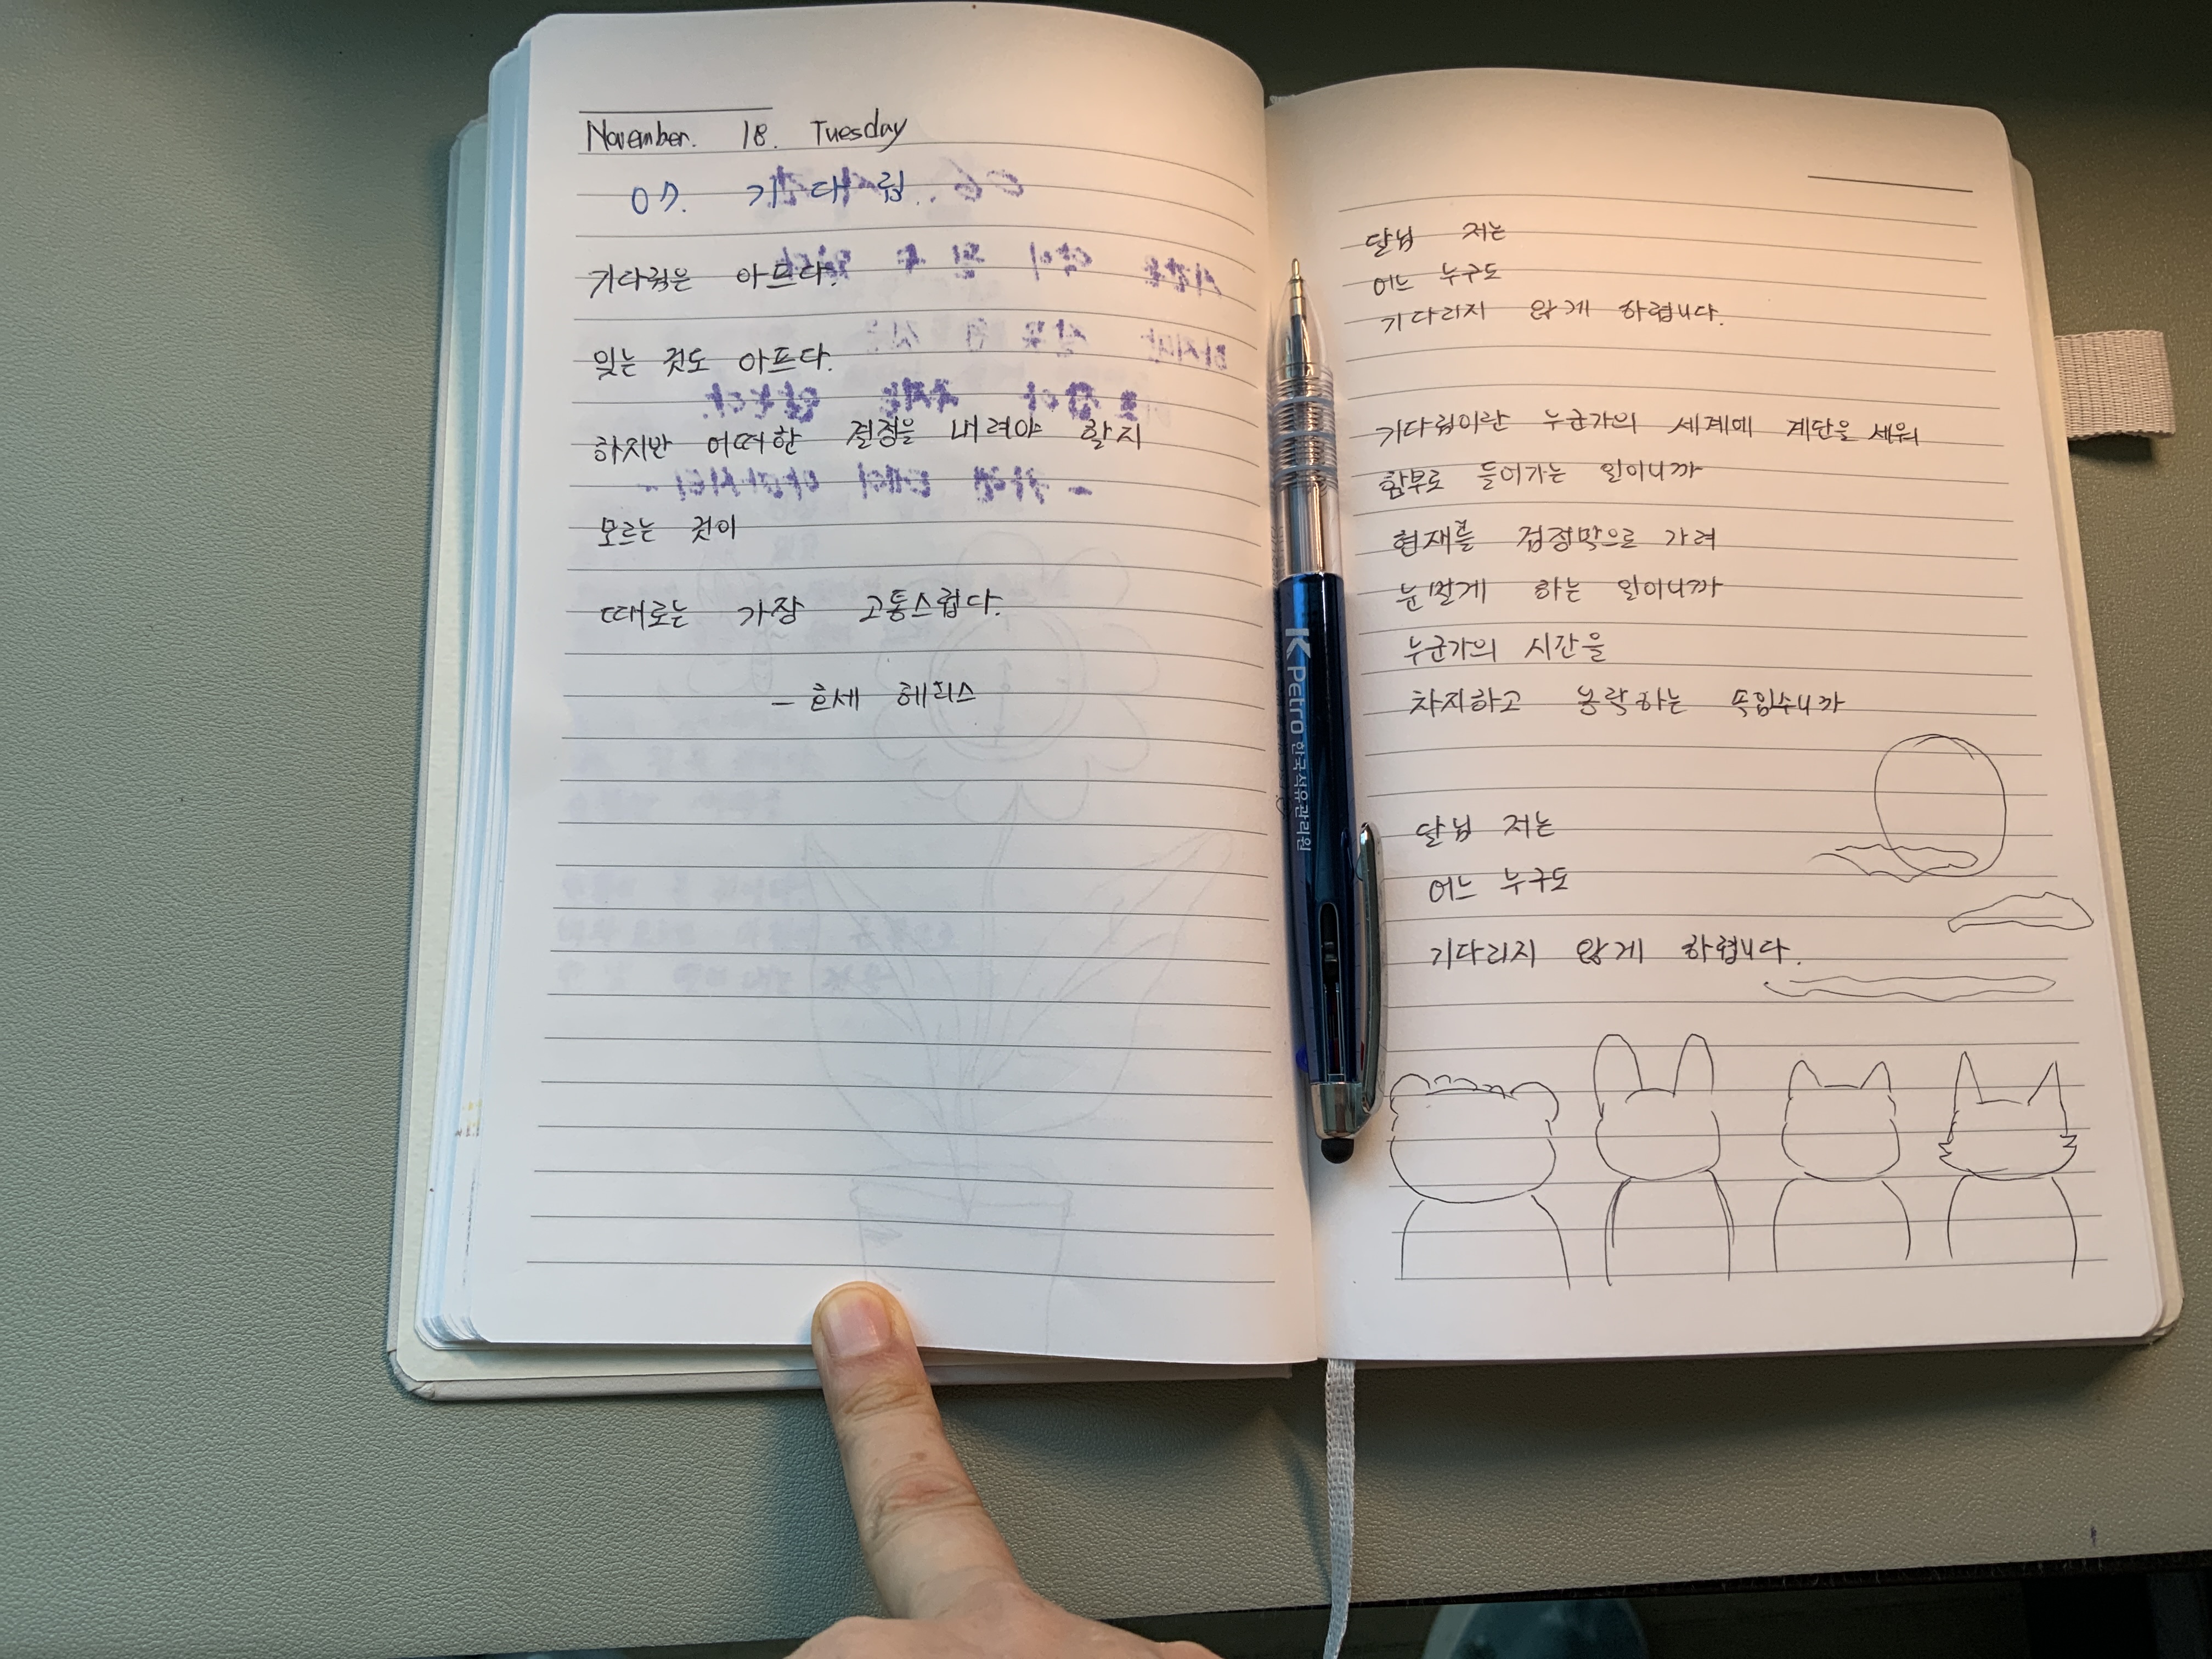 November. 18. Tuesday
07. 기다림.
기다림은 아프다.
잊는 것도 아프다.
하지만 어떠한 결정을 내려야 할지
모르는 것이
때로는 가장 고통스럽다.
- 호세 헤피스
달님 저는
어느 누구도
기다리지 않게 하렵니다.
기다림이란 누군가의 세계에 계단을 세워
함부로 들어가는 일이니까
현재를 검정막으로 가려
눈멀게 하는 일이니까
누군가의 시간을
차지하고 농락하는 속임수니까
달님 저는
어느 누구도
기다리지 않게 하렵니다.
K PETRO 한국석유관리원